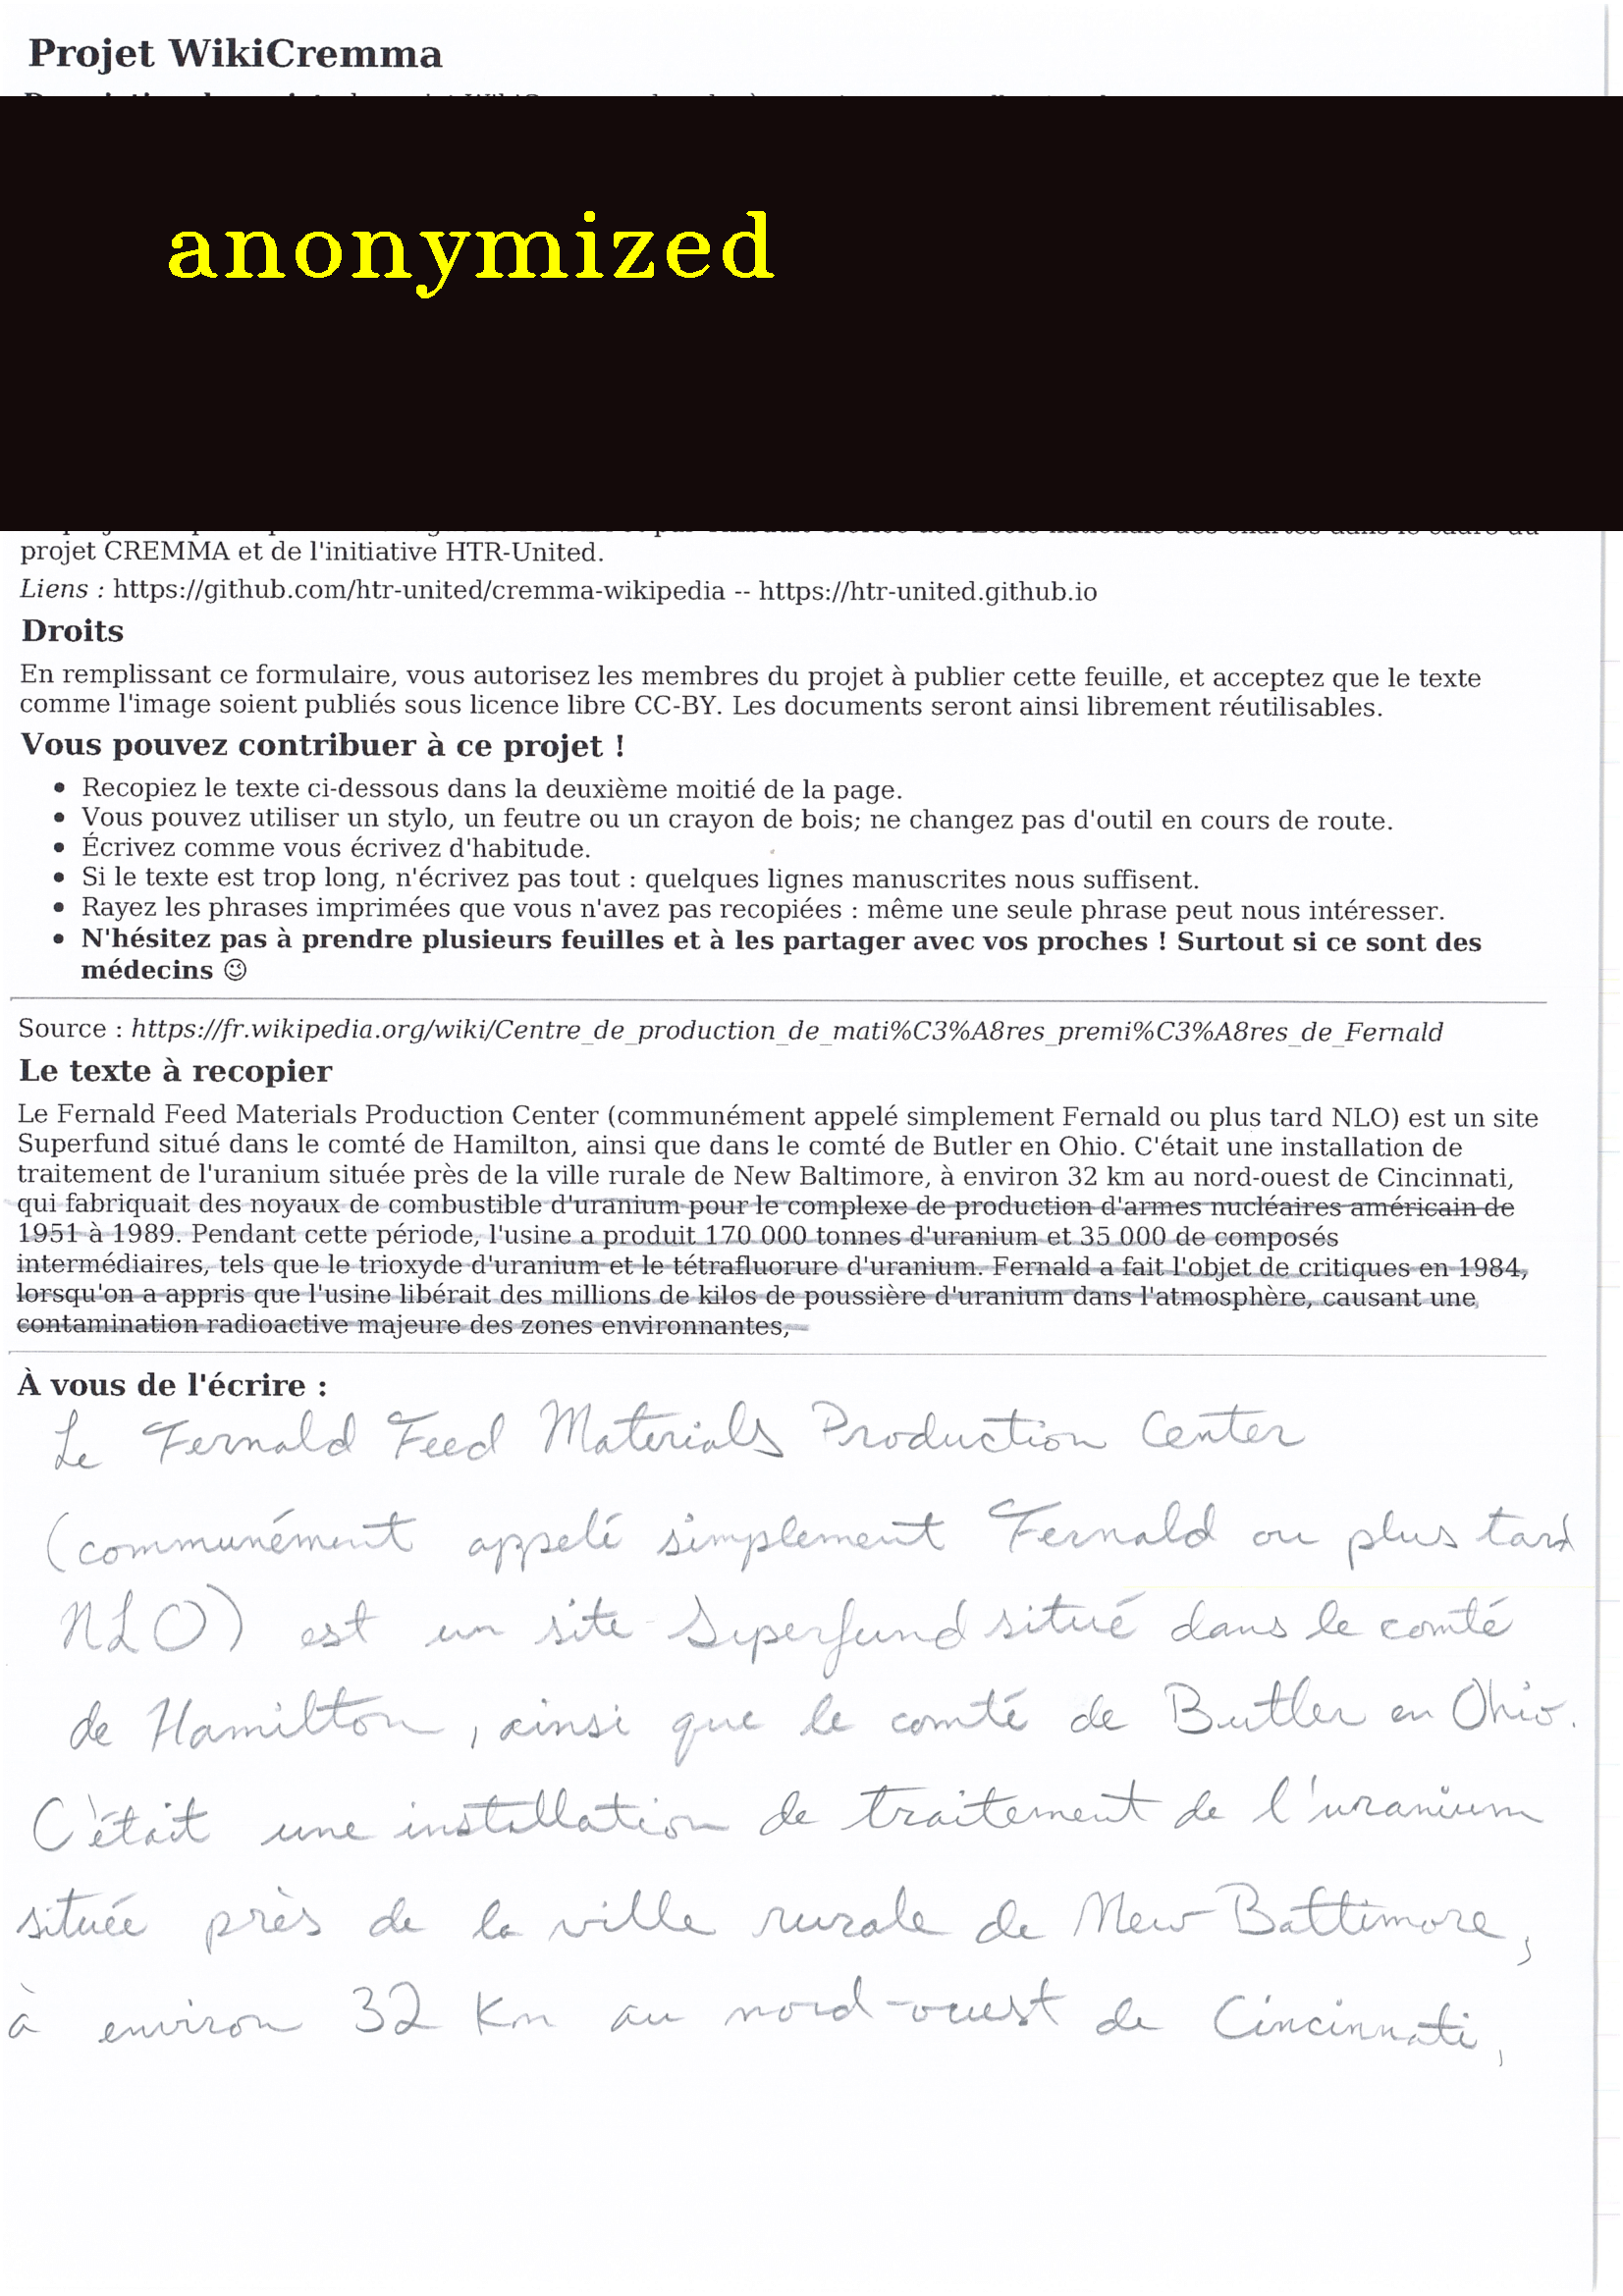 Projet WikiCremma
anonymized
projet CREMMA et de l'initiative HTR-United.
Liens : https://github.com/htr-united/cremma-wikipedia -- https://htr-united.github.io
Droits
En remplissant ce formulaire, vous autorisez les membres du projet à publier cette feuille, et acceptez que le texte
comme l'image soient publiés sous licence libre CC-BY. Les documents seront ainsi librement réutilisables.
Vous pouvez contribuer à ce projet !
• Recopiez le texte ci-dessous dans la deuxième moitié de la page.
• Vous pouvez utiliser un stylo, un feutre ou un crayon de bois; ne changez pas d'outil en cours de route.
• Écrivez comme vous écrivez d'habitude.
• Si le texte est trop long, n'écrivez pas tout : quelques lignes manuscrites nous suffisent.
• Rayez les phrases imprimées que vous n'avez pas recopiées : même une seule phrase peut nous intéresser.
• N'hésitez pas à prendre plusieurs feuilles et à les partager avec vos proches ! Surtout si ce sont des
médecins 😉
Source : https://fr.wikipedia.org/wiki/Centre_de_production_de_mati%C3%A8res_premi%C3%A8res_de_Fernald
Le texte à recopier
Le Fernald Feed Materials Production Center (communément appelé simplement Fernald ou plus tard NLO) est un site
Superfund situé dans le comté de Hamilton, ainsi que dans le comté de Butler en Ohio. C'était une installation de
traitement de l'uranium située près de la ville rurale de New Baltimore, à environ 32 km au nord-ouest de Cincinnati,
qui fabriquait des noyaux de combustible d'uranium pour le complexe de production d'armes nucléaires américain de
1951 à 1989. Pendant cette période, l'usine a produit 170 000 tonnes d'uranium et 35 000 de composés
intermédiaires, tels que le trioxyde d'uranium et le tétrafluorure d'uranium. Fernald a fait l'objet de critiques en 1984,
lorsqu'on a appris que l'usine libérait des millions de kilos de poussière d'uranium dans l'atmosphère, causant une
contamination radioactive majeure des zones environnantes,
À vous de l'écrire :
Le Fernald Feed Materials Production Center
(communément appelé simplement Fernald ou plus tard
NLO) est un site Superfund situé dans le comté
de Hamilton, ainsi que le comté de Butler en Ohio.
C'était une installation de traitement de l'uranium
située près de la ville rurale de New Baltimore,
à environ 32 Km au nord-ouest de Cincinnati,